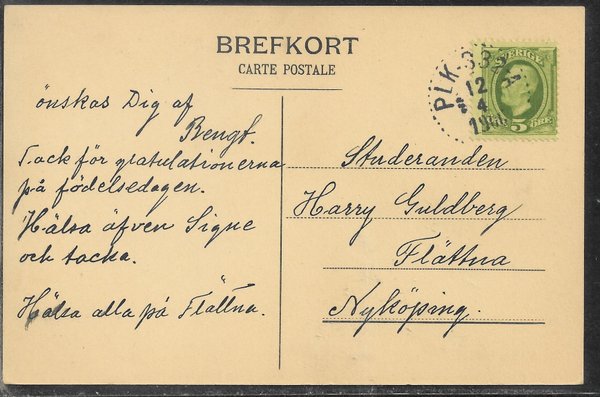 BREFKORT
CARTE POSTALE
SVERIGE
5 ÖRE
12
4
önskas Dig af
Bengt.
Tack för gratulationerna
på födelsedagen.
Hälsa äfven Signe
och tacka.
Hälsa alla på Flättna.
Studeranden
Harry Guldberg
Flättna
Nyköping.